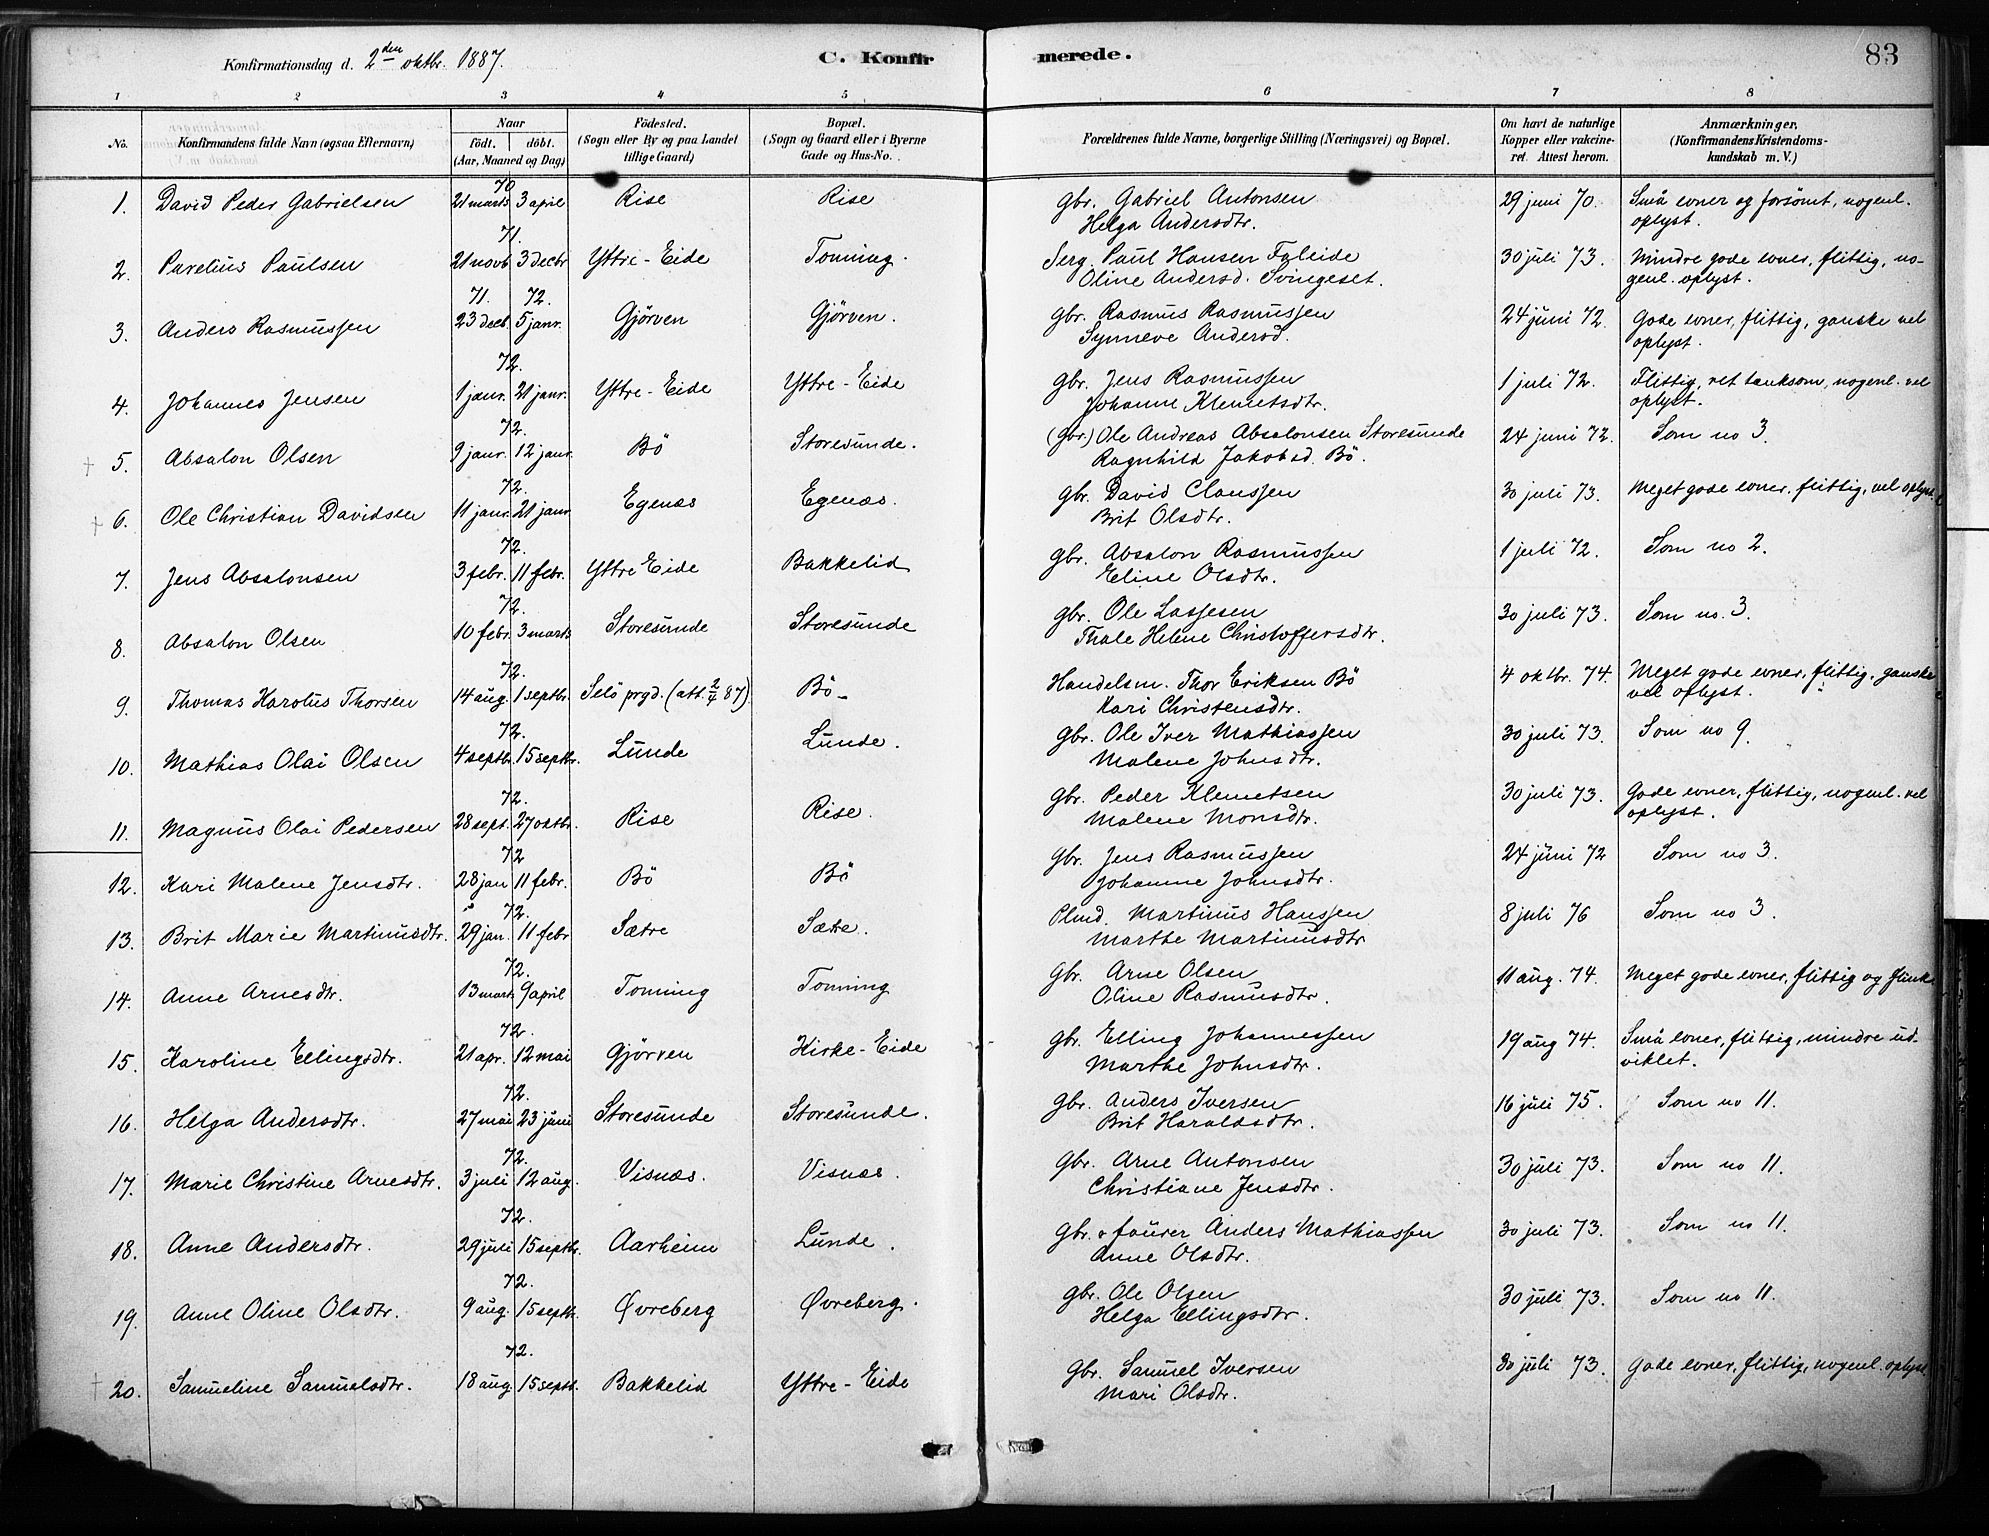 Konfirmationsdag d. 2den oktbr. 1887.
C. Konfir
merede.
83
1 2 3 4 5 6 7 8
No.
Konfirmandens fulde Navn (ogsaa Efternavn)
Naar
födt. döbt.
(Aar, Maaned og Dag)
Födested.
(Sogn eller By og paa Landet
tillige Gaard)
Bopæl.
(Sogn og Gaard eller i Byerne
Gade og Hus-No.
Forældrenes fulde Navne, borgerlige Stilling (Næringsvei) og Bopæl.
Om havt de naturlige
Kopper eller vakcine-
ret. Attest herom.
Anmærkninger,
(Konfirmandens Kristendoms-
kundskab m. V.)
70
1. David Peder Gabrielsen 21 marts 3 april Rise Rise gbr. Gabriel Antonsen 29 juni 70. Små evner og forsömt, nogenl.
Helga Andersdtr. oplyst.
71.
2. Parelius Paulsen 21 novb. 3 decbr Yttre-Eide Tonning. Serg. Paul Hansen Faleide 30 juli 73. Mindre gode evner, flittig, no-
Oline Andersd. Svingeset. genl. oplyst.
71. 72.
3. Anders Rasmussen 23 decb. 5 janr. Gjörven Gjörven. gbr. Rasmus Rasmussen 24 juni 72. Gode evner, flittig, ganske vel
Synneve Andersd. oplyst.
72.
4. Johannes Jensen 1 janr. 21 janr. Yttre-Eide Yttre-Eide gbr. Jens Rasmussen 1 juli 72. Flittig, ret tænksom, nogenl. vel
Johanne Klemetsdtr. oplyst.
72.
† 5. Absalon Olsen 9 janr. 12 janr. Bö Storesunde. (gbr.) Ole Andreas Absalonsen Storesunde 24 juni 72. Som no 3.
Ragnhild Jakobsd. Bö.
72.
† 6. Ole Christian Davidsen 11 janr. 21 janr. Egenæs Egenæs. gbr. David Claussen 30 juli 73. Meget gode evner, flittig, vel oplyst
Brit Olsdtr.
72.
7. Jens Absalonsen 3 febr. 11 febr. Yttre Eide Bakkelid gbr. Absalon Rasmussen 1 juli 72. Som no 2.
Eline Olsdtr.
72.
8. Absalon Olsen 10 febr. 3 marts Storesunde Storesunde gbr. Ole Lassesen 30 juli 73. Som no. 3.
Thale Helene Christoffersdtr.
72.
9. Thomas Karolus Thorsen 14 aug. 1 septbr. Selö prgd. (att. 87) Bö Handelsm. Thor Eriksen Bö 4 oktbr. 74. Meget gode evner, flittig, ganske
Kari Christensdtr. vel oplyst.
72.
10. Mathias Olai Olsen 4 septbr. 15 septbr. Lunde Lunde. gbr. Ole Iver Mathiassen 30 juli 73. Som no 9.
Malene Johnsdtr.
72.
11. Magnus Olai Pedersen 28 sept. 27 oktbr. Rise Rise. gbr. Peder Klemetsen 30 juli 73. Gode evner, flittig, nogenl. vel
Malene Monsdtr. oplyst.
72
12. Kari Malene Jensdtr. 28 jan 11 febr. Bö Bö gbr. Jens Rasmussen 24 juni 72 Som no 3.
Johanne Johnsdtr.
72.
13. Brit Marie Martinusdtr. 29 jan. 11 febr Sætre Sætre. Plmd. Martinus Hanssen 8 juli 76 Som no 3.
Marthe Martinusdtr
72.
14. Anne Arnesdtr. 13 mart. 9 april Tonning Tonning gbr. Arne Olsen 11 aug. 74. Meget gode evner, flittig og flink
Oline Rasmusdtr.
72.
15. Karoline Ellingsdtr. 21 apr. 12 mai Gjörven Kirke-Eide gbr. Elling Johannessen 19 aug 74. Små evner, flittig, mindre ud-
Marthe Johnsdtr. viklet.
72.
16. Helga Andersdtr. 27 mai 23 juni Storesunde Storesunde. gbr. Anders Iversen 16 juli 75. Som no 11.
Brit Haraldsdtr.
72.
17. Marie Christine Arnesdtr. 3 juli 12 aug. Visnæs. Visnæs. gbr. Arne Antonsen 30 juli 73. Som no 11.
Christiane Jensdtr.
72.
18. Anne Andersdtr. 29 juli 15 septbr. Aarheim Lunde. gbr. o faurer Anders Mathiassen 30 juli 73. Som no 11.
Anne Olsdtr.
72.
19. Anne Oline Olsdtr. 9 aug. 15 septb. Øvreberg Øvreberg. gbr. Ole Olsen 30 juli 73. Som no 11.
Helga Ellingsdtr.
72.
† 20. Samueline Samuelsdtr. 18 aug. 15 septb. Bakkelid Yttre-Eide gbr. Samuel Iversen 30 juli 73. Gode evner, flittig, nogenl. oplyst.
Mari Olsdtr.